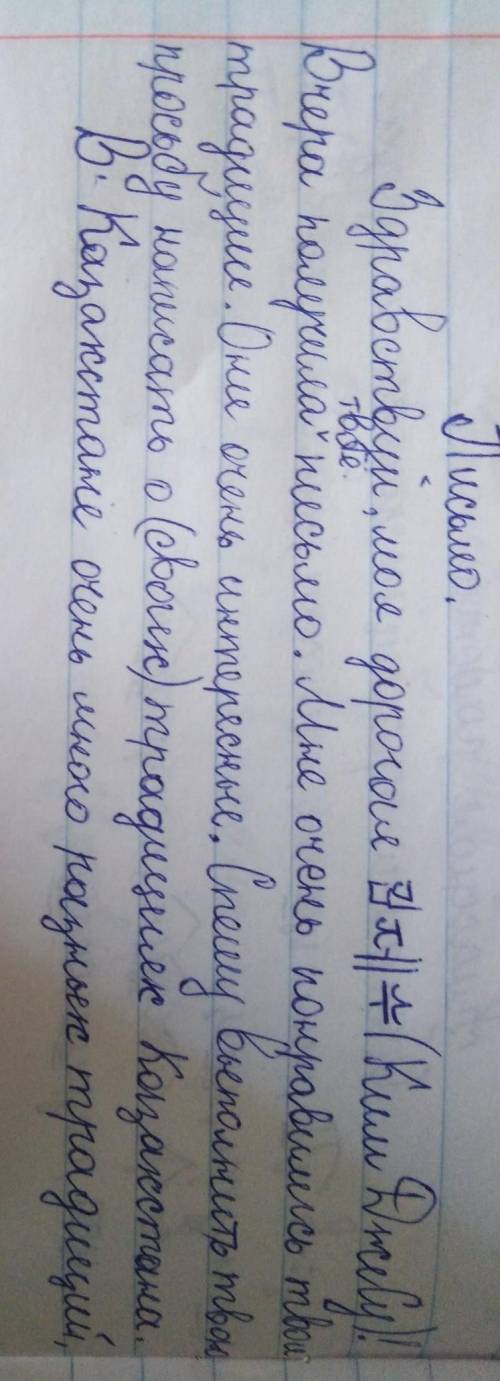 Письмо.
Здравствуй, моя дорогая (Ким Джебу)!
Вчера получила твоё письмо. Мне очень понравились твои
традиции. Они очень интересные. Спешу выполнить твою
просьбу написать о (своих) традициях Казахстана.
В Казахстане очень много разных традиций,